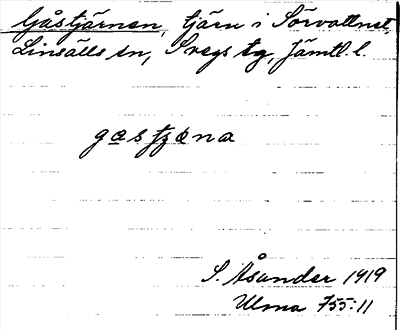 Gåstjärnen, tjärn i Sörvallnet,
Linsälls sn, Svegs tg, Jämtl. l.
gastjæna
S. Åsander 1919
Ulma 755:11